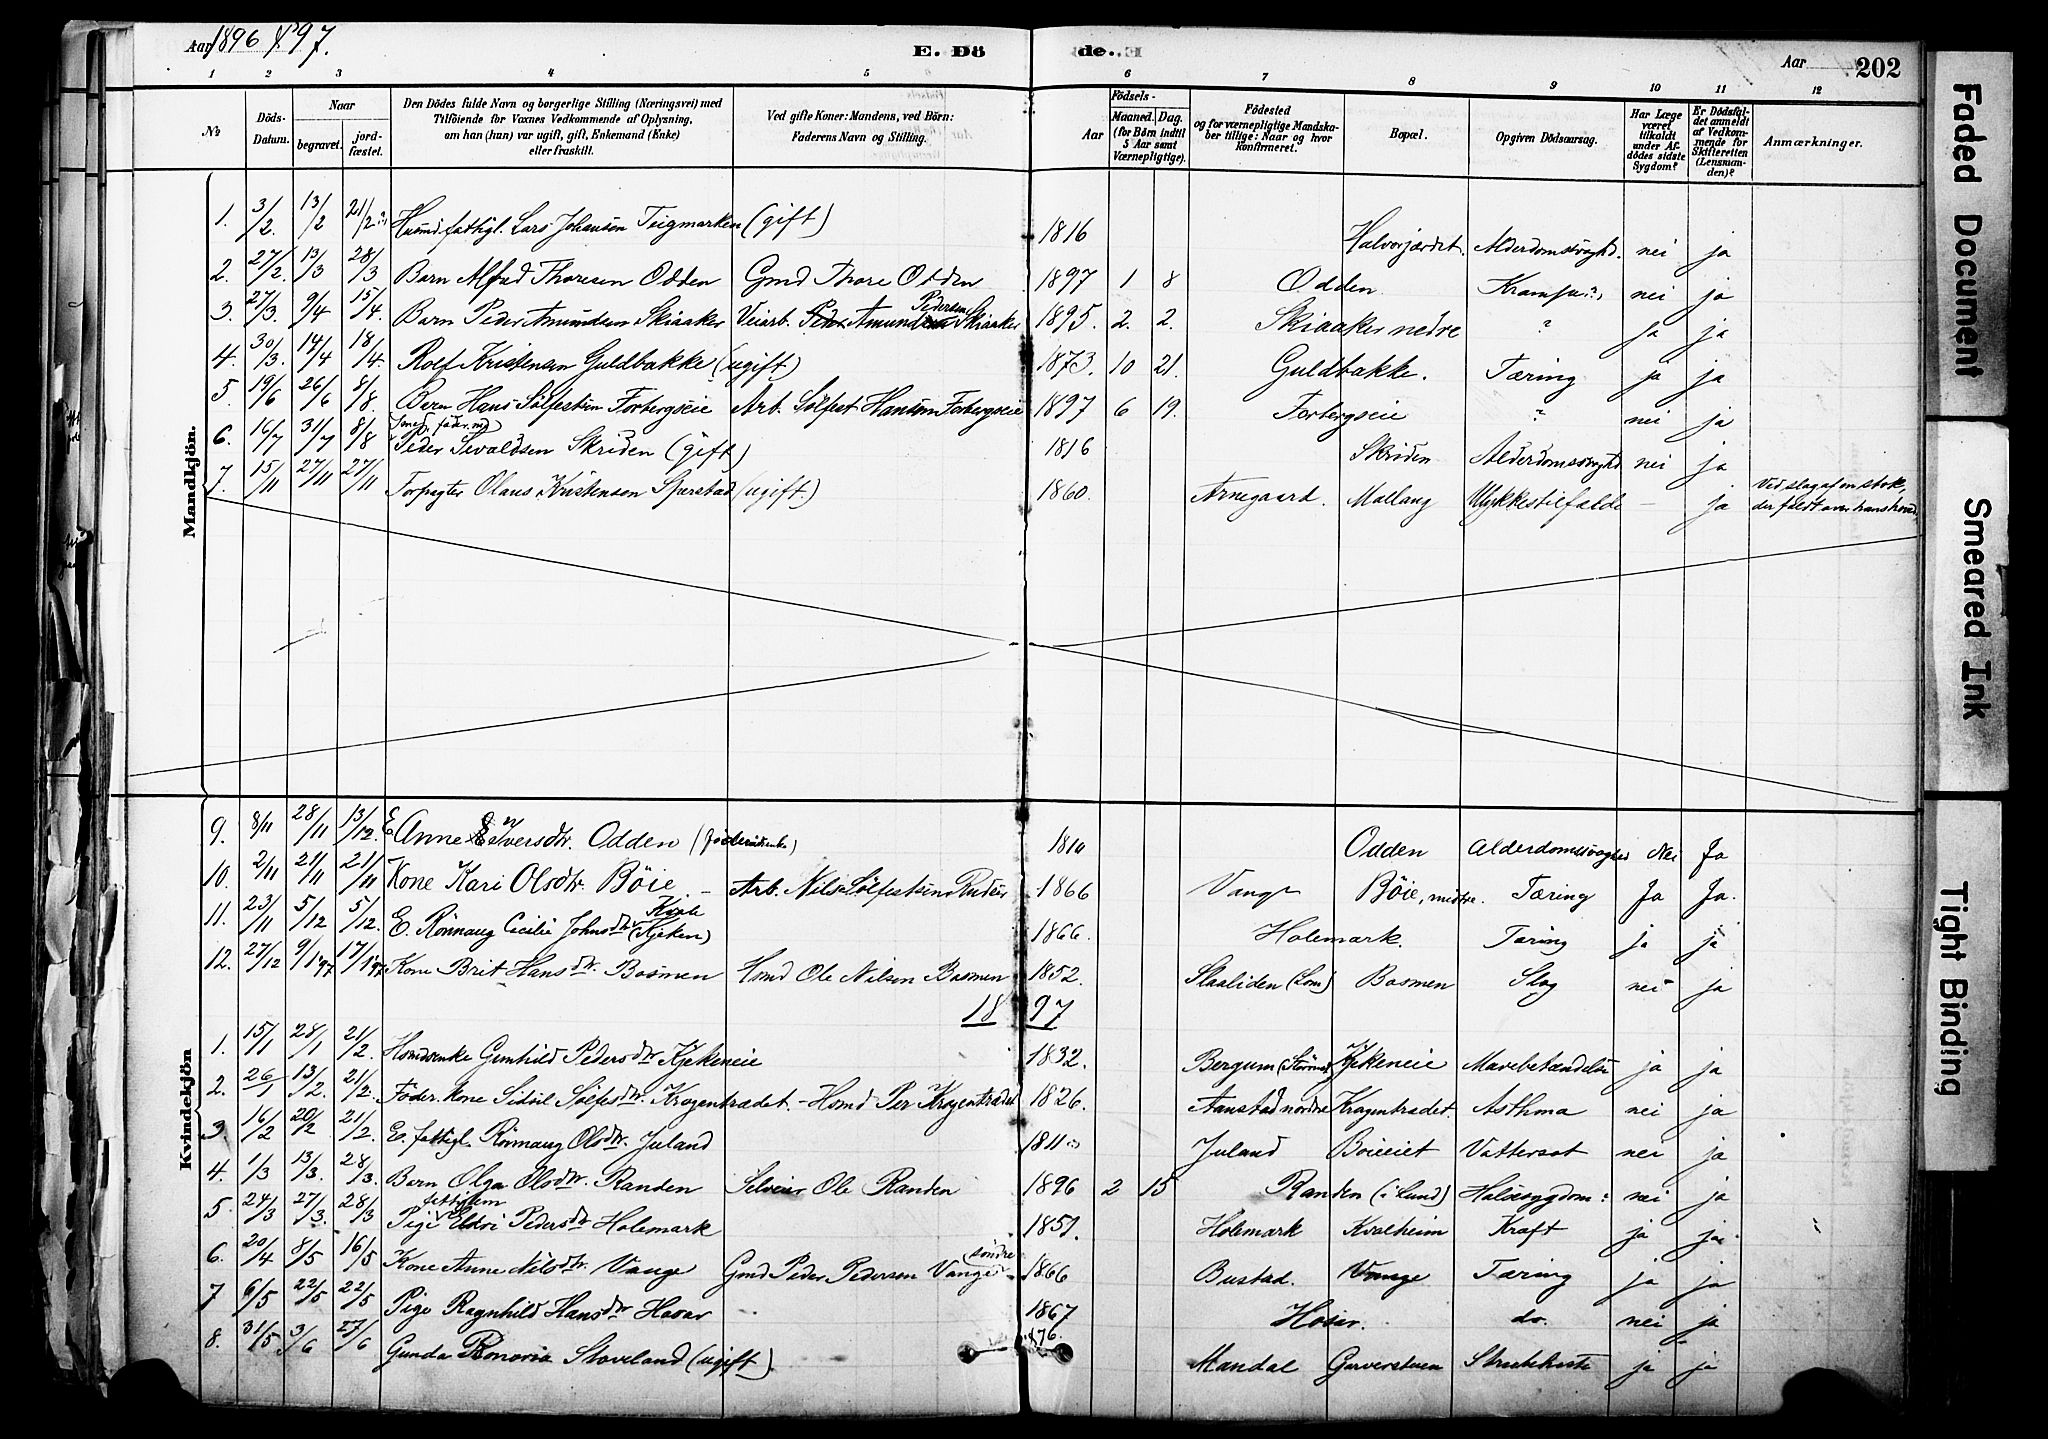 Aar 1896 & 97.
E. Döde.
Aar 202
1 2 3 4 5 6 7 8 9 10 11 12
No
Döds-Datum.
Naar
begravet.
jord-fæstet.
Den Dödes fulde Navn og borgerlige Stilling (Næringsvei) med
Tilföiende for Voxnes Vedkommende af Oplysning,
om han (hun) var ugift, gift, Enkemand (Enke)
eller fraskilt.
Ved gifte Koner: Mandens, ved Börn:
Faderens Navn og Stilling.
Födsels-
Aar
Maaned. Dag.
(for Börn indtil
5 Aar samt
Værnepligtige).
Födested
og for værnepligtige Mandska-
ber tillige: Naar og hvor
konfirmeret.
Bopæl.
Opgiven Dödsaarsag.
Har Læge
været
tilkaldt
under Af-
dödes sidste
Sygdom?
Er Dödsfal-
det anmeldt
af Vedkom-
mende for
Skifteretten
(Lensman-
den)?
Anmærkninger.
Mandkjön.
1. 3/2. 13/2 21/2 Lars Johansen Tugmarken (gift) 1816 Halvorjordet. Alderdomssvaghd. nei ja
2. 27/2. 13/3 28/3 Barn Alfred Thoresen Odden Gmd Thore Odden 1897 1 8 Odden Krampe nei ja
3. 27/3. 9/4 15/4. Barn Peder Amundsen Skiaaker Veiarb. Amund Pedersen Skiaaker 1895. 2. 2. Skiaaker nedre ? ja ja
4. 30/3. 14/4 18/4. Rolf Kristensen Guldbakke (ugift) 1873. 10 21. Guldbakke. Tæring ja ja
5. 19/6 26/6 8/8. Barn Hans Sölfestsen Forbergseie Arb. Sölfest Hansen Forbergseie 1897 6 19. Forbergseie ? nei ja
6. 16/7 31/7 8/8 Peder Sivaldsen Skriden (gift) 1816 Skriden Alderdomssvaghd nei ja
7. 15/11 27/11 27/11 Forpagter Olaus Kristensen Sperstad (ugift.) 1860. Arnegaard. Mallang Ulykkestilfælde - ja Ved slag af en stok, der faldt over hans hoved
9. 8/11 28/11 13/12. E Anne Enversdtr. Odden 1810 Odden Alderdomssvaghed Nei Ja
10. 2/11 21/11 21/11 Kone Kari Olsdtr. Böie - Arb. Nils Sölfestsen 1866 Vange Böie, midtre. Tæring Ja Ja.
11. 23/11 5/12 5/12. E. Rönnaug Cecilie Johnsdtr (Kjeken) 1866. Holemark. Tæring ja ja
12. 27/12 9/1 97 17/1 97 Kone Brit Hansdtr. Bosmen Hmd Ole Nilsen Bosmen 1852. Skaaliden (Lom) Bosmen Slag nei ja
1897
Kvindekjön
1. 15/1 28/1 21/2. Hmdsenke Gunhild Pedersdtr Kjekeneie 1832. Bergum Kjekeneie Mavebetændelse ja ja
2. 26/1 13/2. 21/2. Föder. kone Sidsil Sölfesdtr. Krogentrædet. - Hmd Per Krogentrædet 1826. Aanstad nordre Krogentrædet. Asthma nei ja
3. 16/2 20/2 21/2. E. fattigl. Rönnaug Olsdtr. Juland 1811 Juland Böieeiet Vattersot nei ja
4. 1/3 13/3. 28/3. Barn Olga Olsdtr. Randen Selveier Ole Randen 1896 2 15 Randen (i Lund) Halssygdom nei ja
5. 24/3 27/3. 28/3 Pige fattiglem Eldri Pedersdtr Holemark 1851. Holemark Kvalheim Kræft ja ja
6. 20/4 8/5 16/5 Kone Anne Nilsdtr. Vange Gmd Peder Pedersen Vange söndre 1866 Bustad. Vange Tæring ja ja
7 6/5 22/5 22/5 Pige Ragnhild Hansdtr Hosar 1867 Hosar. do. nei ja
8. 31/5 3/6 27/6 Gunda Honoria Stoveland (ugift) 1876. Mandal Garverstuen ja ja
Faded Document
Smeared Ink
Tight Binding